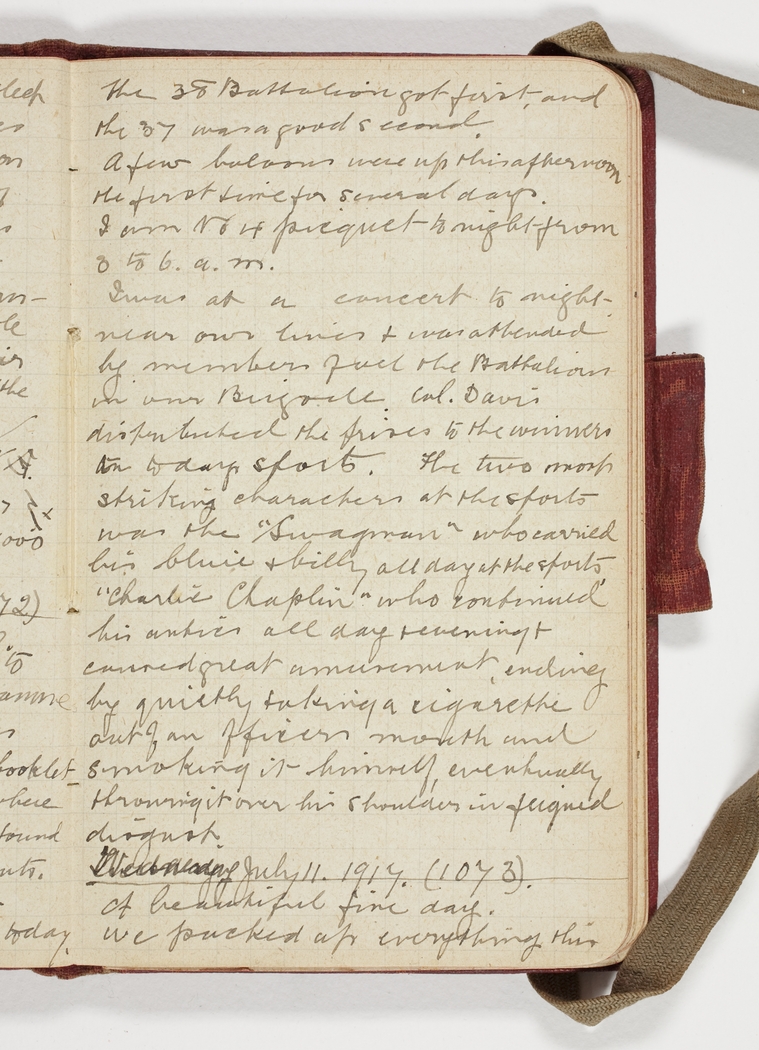 leep
es
on
the 38 Battalion got first, and
the 37 was a good second.
A few baloons were up this afternoon
the first time for several days.
I am No 4 picquet to night from
3 to 6. a. m.
I was at a concert to night
near our lines & was attended
by members of all the Battalions
in our Brigade. Col. Davis
distributed the prises to the winners
in to days sports. The two most
striking characthers at the sports
was the "Swagman" who carried
his bluie & billy all day at the sports
"Charlie Chaplin" who continued
his antics all day & evening &
caused great amusement, ending
by quietly taking a cigarette
out of an officers mouth and
smoking it himself, eventually
throwing it over his shoulder in feigned
disgust.
Wednesday July 11. 1917. (1073).
A beautiful fine day.
We packed up everything this
the
000
72)
to
booklet
where
found
nts.
today